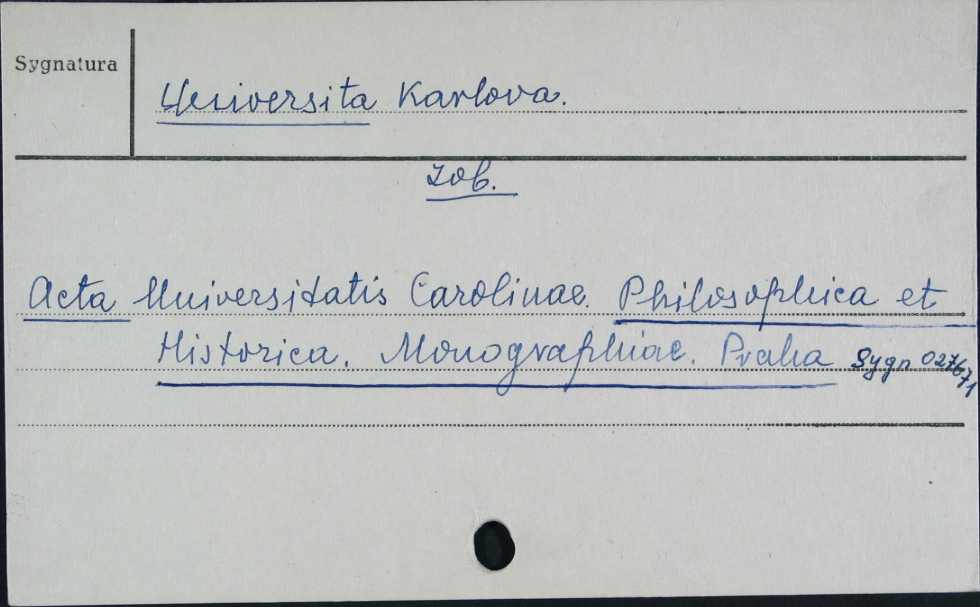 Sygnatura
Universita Karlova.
zob.
Acta Universitatis Carolinae. Philosophica et
Historica. Monographiae. Praha Sygn 027671